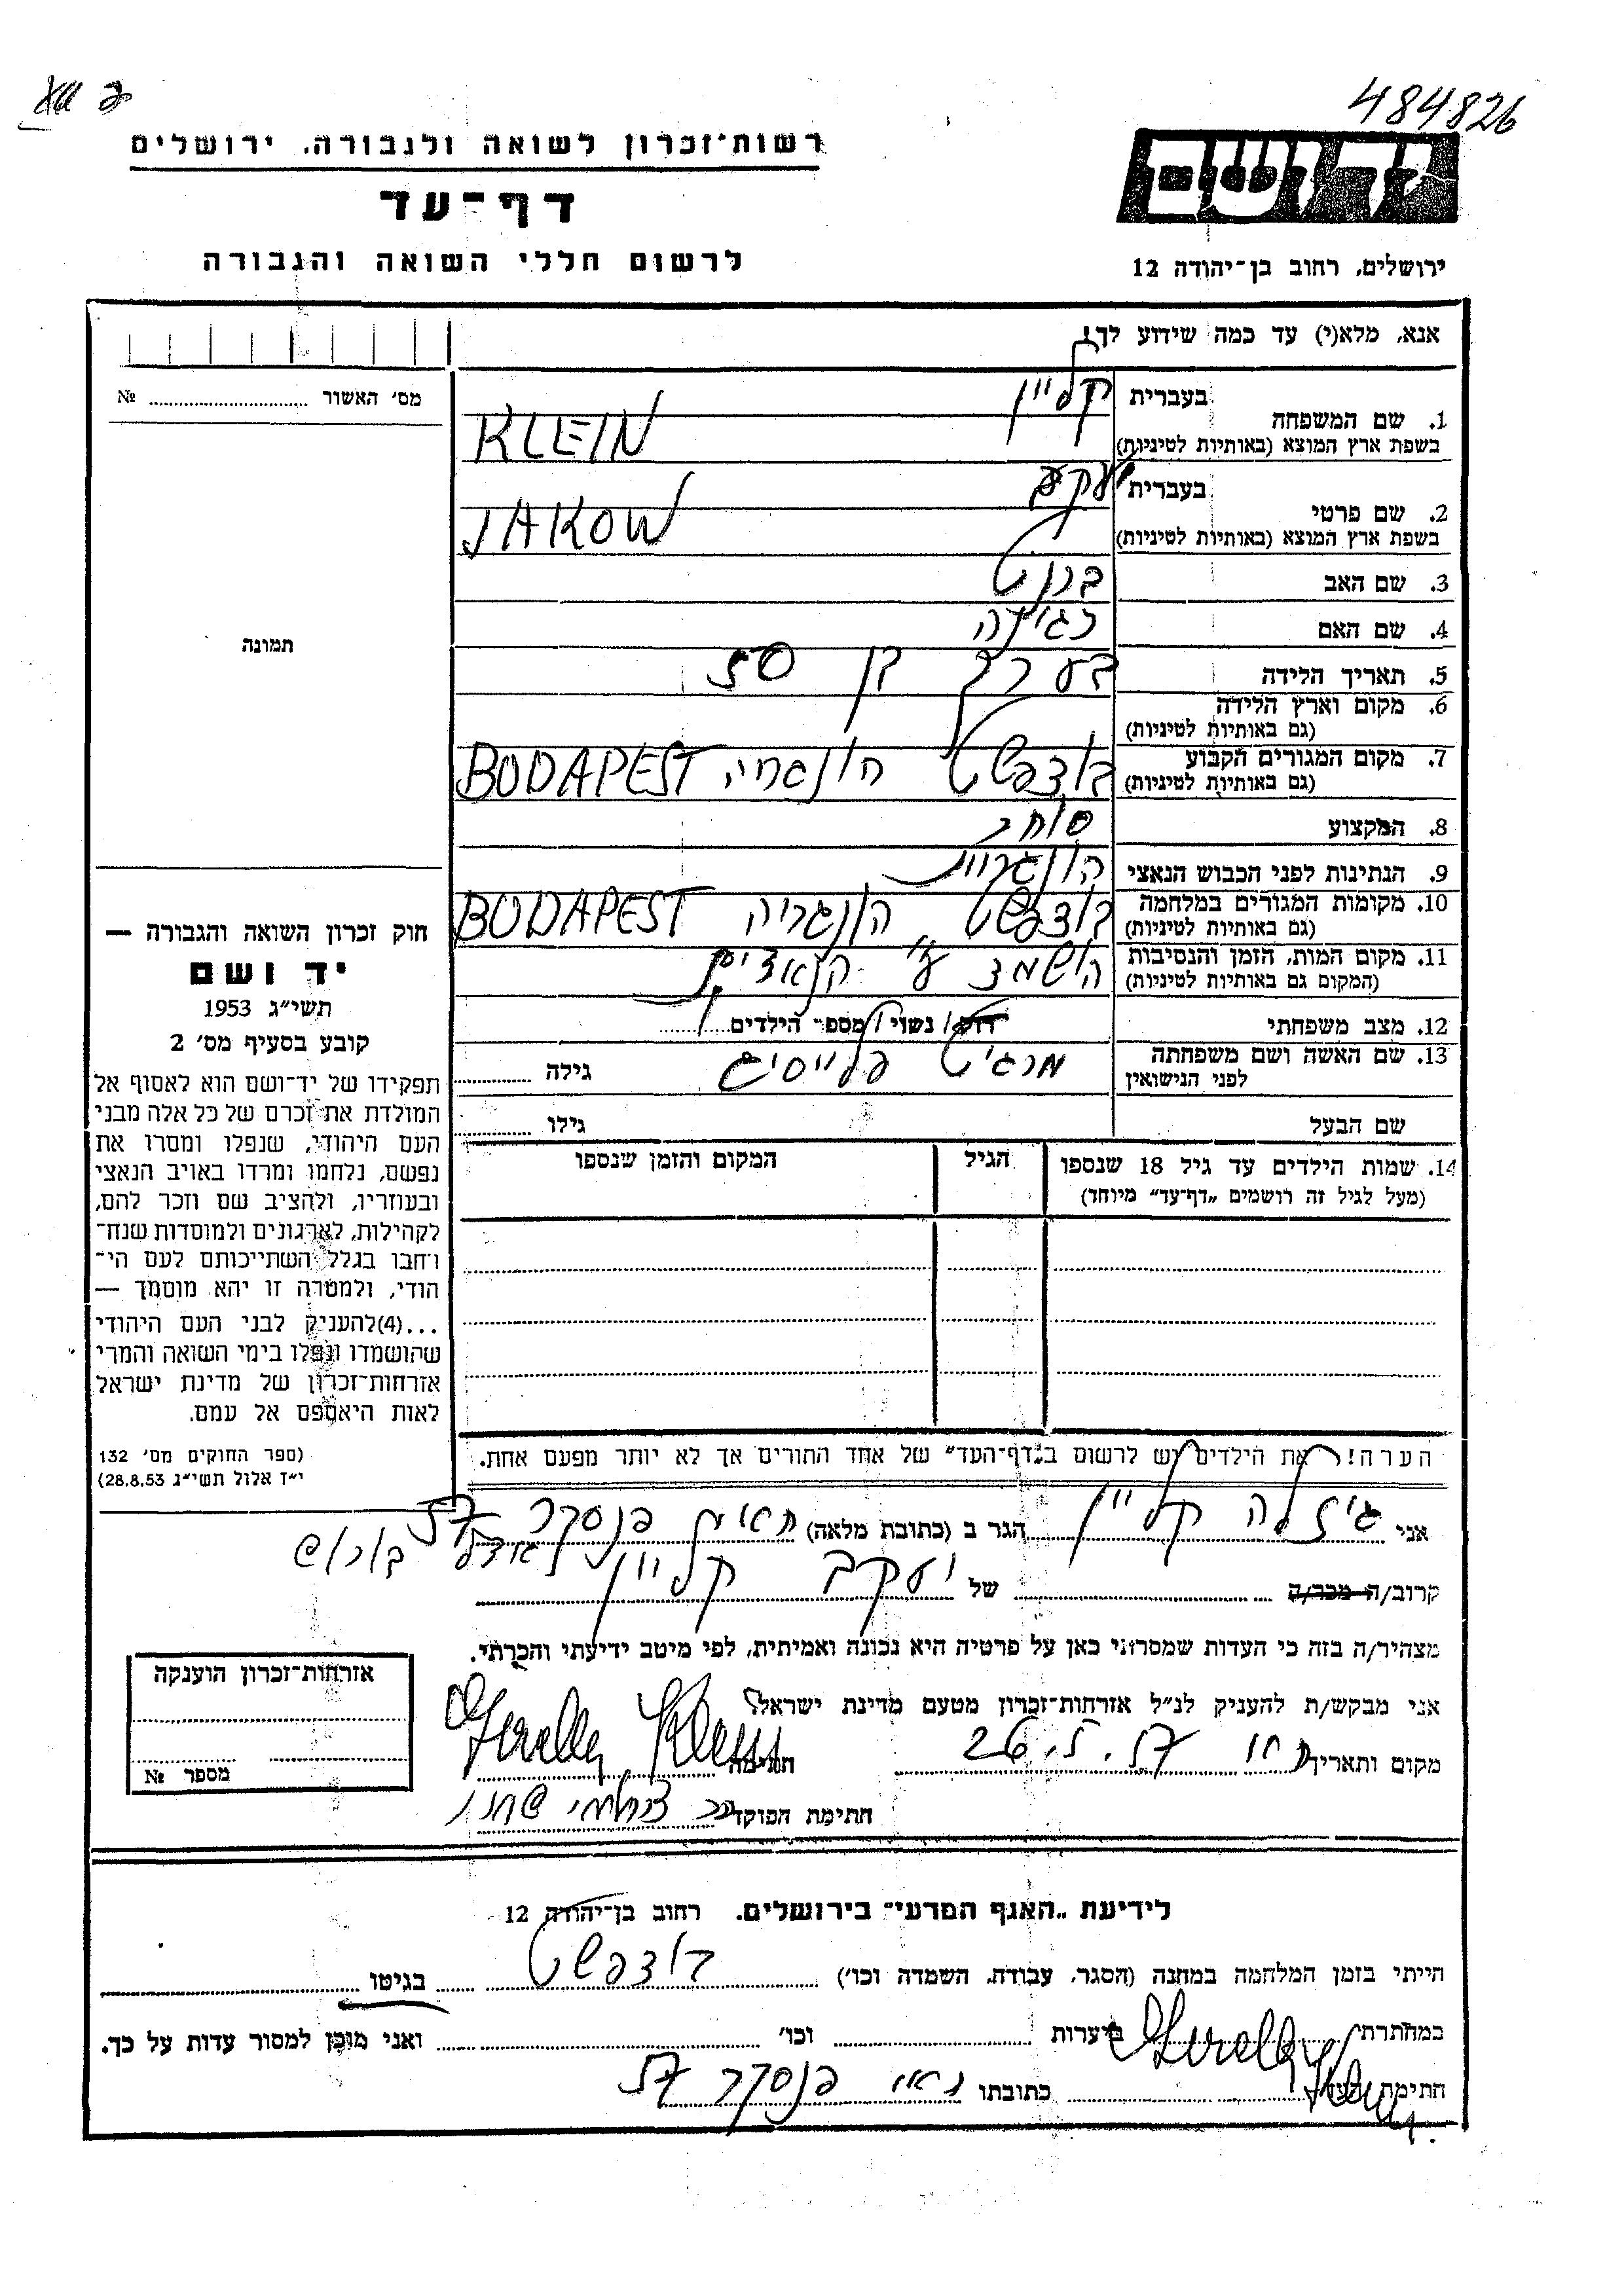 484826
רשות־זכרון לשואה ולגבורה. ירושלים
דף־עד
לרשום חללי השואה והגבורה
יד ושם
ירושלים, רחוב בן־יהודה 12
אנא, מלא(י) עד כמה שידוע לך!
מס׳ האשור № 
תמונה
בעברית קליין
1. שם המשפחה
בשפת ארץ המוצא (באותיות לטיניות) KLEIN
בעברית יעקב
2. שם פרטי
בשפת ארץ המוצא (באותיות לטיניות) JAKOW
3. שם האב
4. שם האם רגינה
5. תאריך הלידה בערך בן 50
6. מקום וארץ הלידה
(גם באותיות לטיניות)
7. מקום המגורים הקבוע בודפשט הונגריה BUDAPEST
(גם באותיות לטיניות)
8. המקצוע סוחר
9. הנתינות לפני הכבוש הנאצי הונגרית
10. מקומות המגורים במלחמה בודפשט הונגריה BUDAPEST
(גם באותיות לטיניות)
11. מקום המות, הזמן והנסיבות הושמד ע״י הנאצים
(המקום גם באותיות לטיניות)
12. מצב משפחתי רווק / נשוי / מספר הילדים
13. שם האשה ושם משפחתה מרגיט גילה
לפני הנישואין
שם הבעל גילו
14. שמות הילדים עד גיל 18 שנספו הגיל המקום והזמן שנספו
(מעל לגיל זה רושמים „דף־עד״ מיוחד)
חוק זכרון השואה והגבורה —
יד ושם
תשי״ג 1953
קובע בסעיף מס׳ 2
תפקידו של יד־ושם הוא לאסוף אל
המולדת את זכרם של כל אלה מבני
העם היהודי, שנפלו ומסרו את
נפשם, נלחמו ומרדו באויב הנאצי
ובעוזריו, ולהציב שם וזכר להם,
לקהילות, לארגונים ולמוסדות שנח־
רחבו בגלל השתייכותם לעם הי־
הודי, ולמטרה זו יהא מוסמך —
...(4)להעניק לבני העם היהודי
שהושמדו ונפלו בימי השואה והמרי
אזרחות־זכרון של מדינת ישראל
לאות היאספם אל עמם.
(ספר החוקים מס׳ 132
י״ז אלול תשי״ג 28.8.53)
הערה! את הילדים יש לרשום ב„דף־העד״ של אחד ההורים אך לא יותר מפעם אחת.
אני גיזלה קליין הגר ב (כתובת מלאה) פנסקר 57
קרוב/ה מכר/ה של יעקב קליין
מצהיר/ה בזה כי העדות שמסרתי כאן על פרטיה היא נכונה ואמיתית, לפי מיטב ידיעתי והכרתי.
אני מבקש/ת להעניק לנ״ל אזרחות־זכרון מטעם מדינת ישראל
מקום ותאריך 26.5.57 חתימה
חתימת הפוקד
אזרחות־זכרון הוענקה
מספר №
לידיעת „האגף המדעי״ בירושלים. רחוב בן־יהודה 12
הייתי בזמן המלחמה במחנה (הסגר, עבודה, השמדה וכו׳) בודפשט בגיטו
במחתרת ביערות וכו׳ ואני מוכן למסור עדות על כך.
חתימת העד כתובתו פנסקר 57